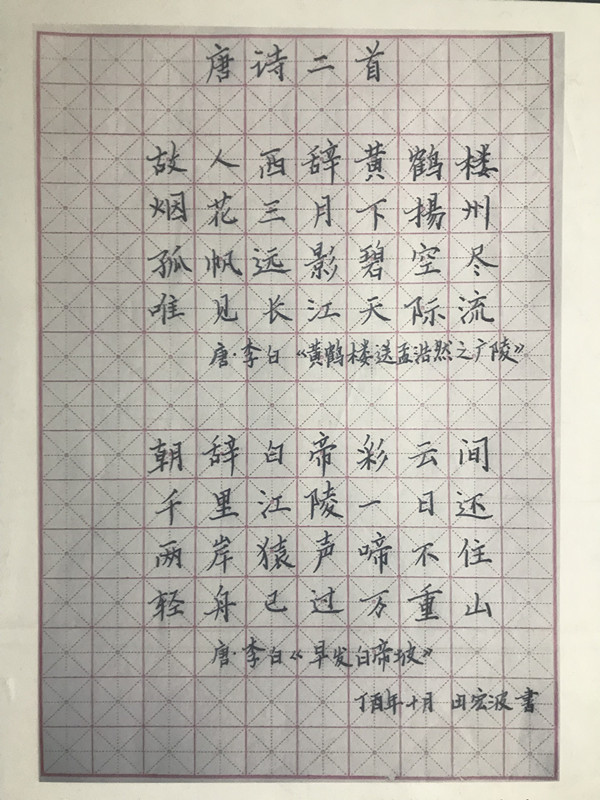 唐诗二首
故人西辞黄鹤楼
烟花三月下揚州
孤帆远影碧空尽
唯见长江天际流
唐·李白《黄鹤楼送孟浩然之广陵》
朝辞白帝彩云间
千里江陵一日还
两岸猿声啼不住
轻舟已过万重山
唐·李白《早发白帝坡》
丁酉年十月 田宏波書